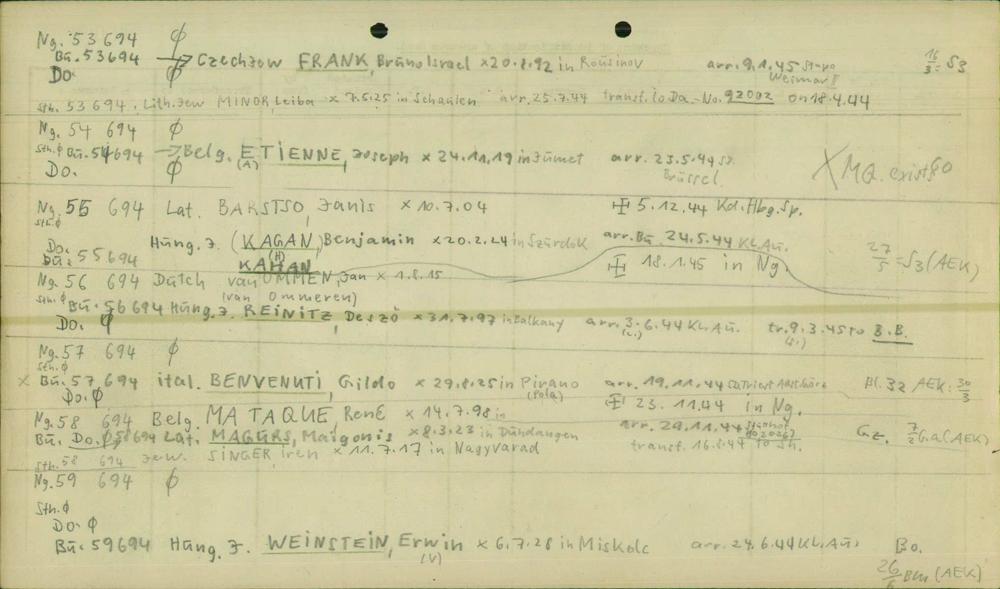 Ng. 53 694 ϕ
Bu. 53694 → Czechjew FRANK, Bruno Israel × 20.8.92 in Rousinov arr. 9.1.45 Stapo Weimar II 16/3 = S3
Do. ϕ
Sth. 53 694. Lith. Jew MINOR Leiba × 7.5.25 in Schaulen arr. 25.7.44 transf. to Da.-No. 92002 on 18.4.44
Ng. 54 694 ϕ
Sth. ϕ Bu. 54694 → Belg. ETIENNE, Joseph × 24.11.19 in Jumet arr. 23.5.44 Brüssel × MQ. exists
(A)
Do. ϕ
Ng. 55 694 Lat. BARSTSO, Janis × 10.7.04 5.12.44 Kd. Hbg. Sp.
Sth. ϕ
Do. Hung. J. (KAGAN, Benjamin × 20.2.24 in Szurdok arr. Bu. 24.5.44 Kl. Au.
Bu. 55694 KAHAN (H) 18.1.45 in Ng. 27/5 = S3 (AEK)
Ng. 56 694 Dutch van OMMEN, Jan × 1.8.15
(van Ommeren)
Sth. ϕ Bu. 56694 Hung. J. REINITZ, Deszö × 31.7.97 in Balkany arr. 3.6.44 Kl. Au. tr. 9.3.45 to B.B.
Do. ϕ
Ng. 57 694 ϕ
Sth. ϕ
× Bu. 57 694 ital. BENVENUTI, Gildo × 29.8.25 in Pirano arr. 19.11.44 Bl. 32 AEK: 30/3
(Pola)
Do. ϕ
Ng. 58 694 Belg. MATAQUE, René × 14.7.98 in 23.11.44 in Ng.
Bu. Do. ϕ 58694 Lat. MAGURS, Maigonis × 8.3.23 in Dundangen arr. Gz. 7/2 G.a (AEK)
Sth. 58 694 Jew. SINGER, Iren × 11.7.17 in Nagyvarad transf. 16.8.44 to Sh.
Ng. 59 694 ϕ
Sth. ϕ
Do. ϕ
Bu. 59694 Hung. J. WEINSTEIN, Erwin × 6.7.28 in Miskolc arr. 24.6.44 Kl. Au. Bo.
(V)
26/6 (AEK)